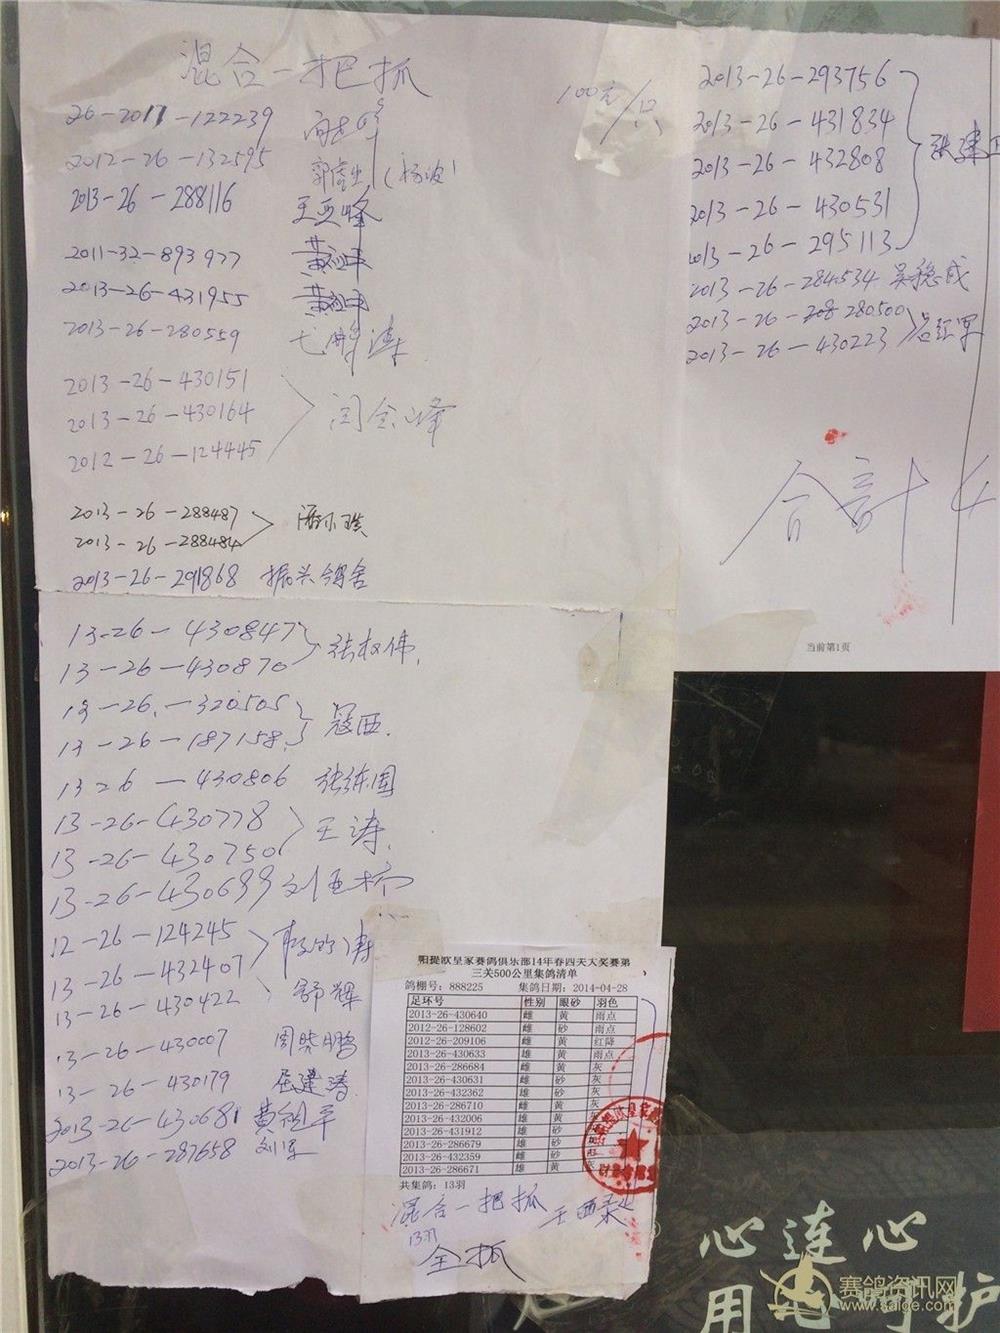 混合一把抓
100元/只
26-2011-122239
2012-26-132595
2013-26-288116 王亚峰
2011-32-893977 黄祖平
2013-26-431955 黄祖平
2013-26-280559
2013-26-430151
2013-26-430164 闫会峰
2012-26-124445
2013-26-288487
2013-26-288484
2013-26-291868 振兴鸽舍
13-26-430847
13-26-430870 张权伟
13-26-320505
13-26-187158 冠西
13 26-430806
13-26-430778 王涛
13-26-430750
13-26-430699
12-26-124245
13-26-432407
13-26-430422 舒辉
13-26-430007 周晓鹏
13-26-430179 屈建涛
2013-26-430681 黄祖平
2013-26-287658 刘军
2013-26-293756
2013-26-431834
2013-26-432808 张建
2013-26-430531
2013-26-295113
2013-26-284534 吴稳成
2013-26-280500
2013-26-430223 吕红军
合計4
当前第1页
阳提欧皇家赛鸽俱乐部14年春四天大奖赛第
三关500公里集鸽清单
鸽棚号: 888225 集鸽日期: 2014-04-28
足环号 性别 眼砂 羽色
2013-26-430640 雌 黄 雨点
2012-26-128602 雌 砂 雨点
2012-26-209106 雄 黄 红降
2013-26-430633 雄 黄 雨点
2013-26-286684 雌 黄 灰
2013-26-430631 雄 砂 灰
2013-26-432362 雄 砂 灰
2013-26-286710 雌 黄 灰
2013-26-432006 雌 黄
2013-26-431912 雌 砂
2013-26-286679 雄 砂
2013-26-432359 雌 砂
2013-26-286671 雄 黄
共集鸽: 13羽
混合一把抓 王西录
13羽
全抓
心连心
用心呵护
赛鸽资讯网
www.saige.com